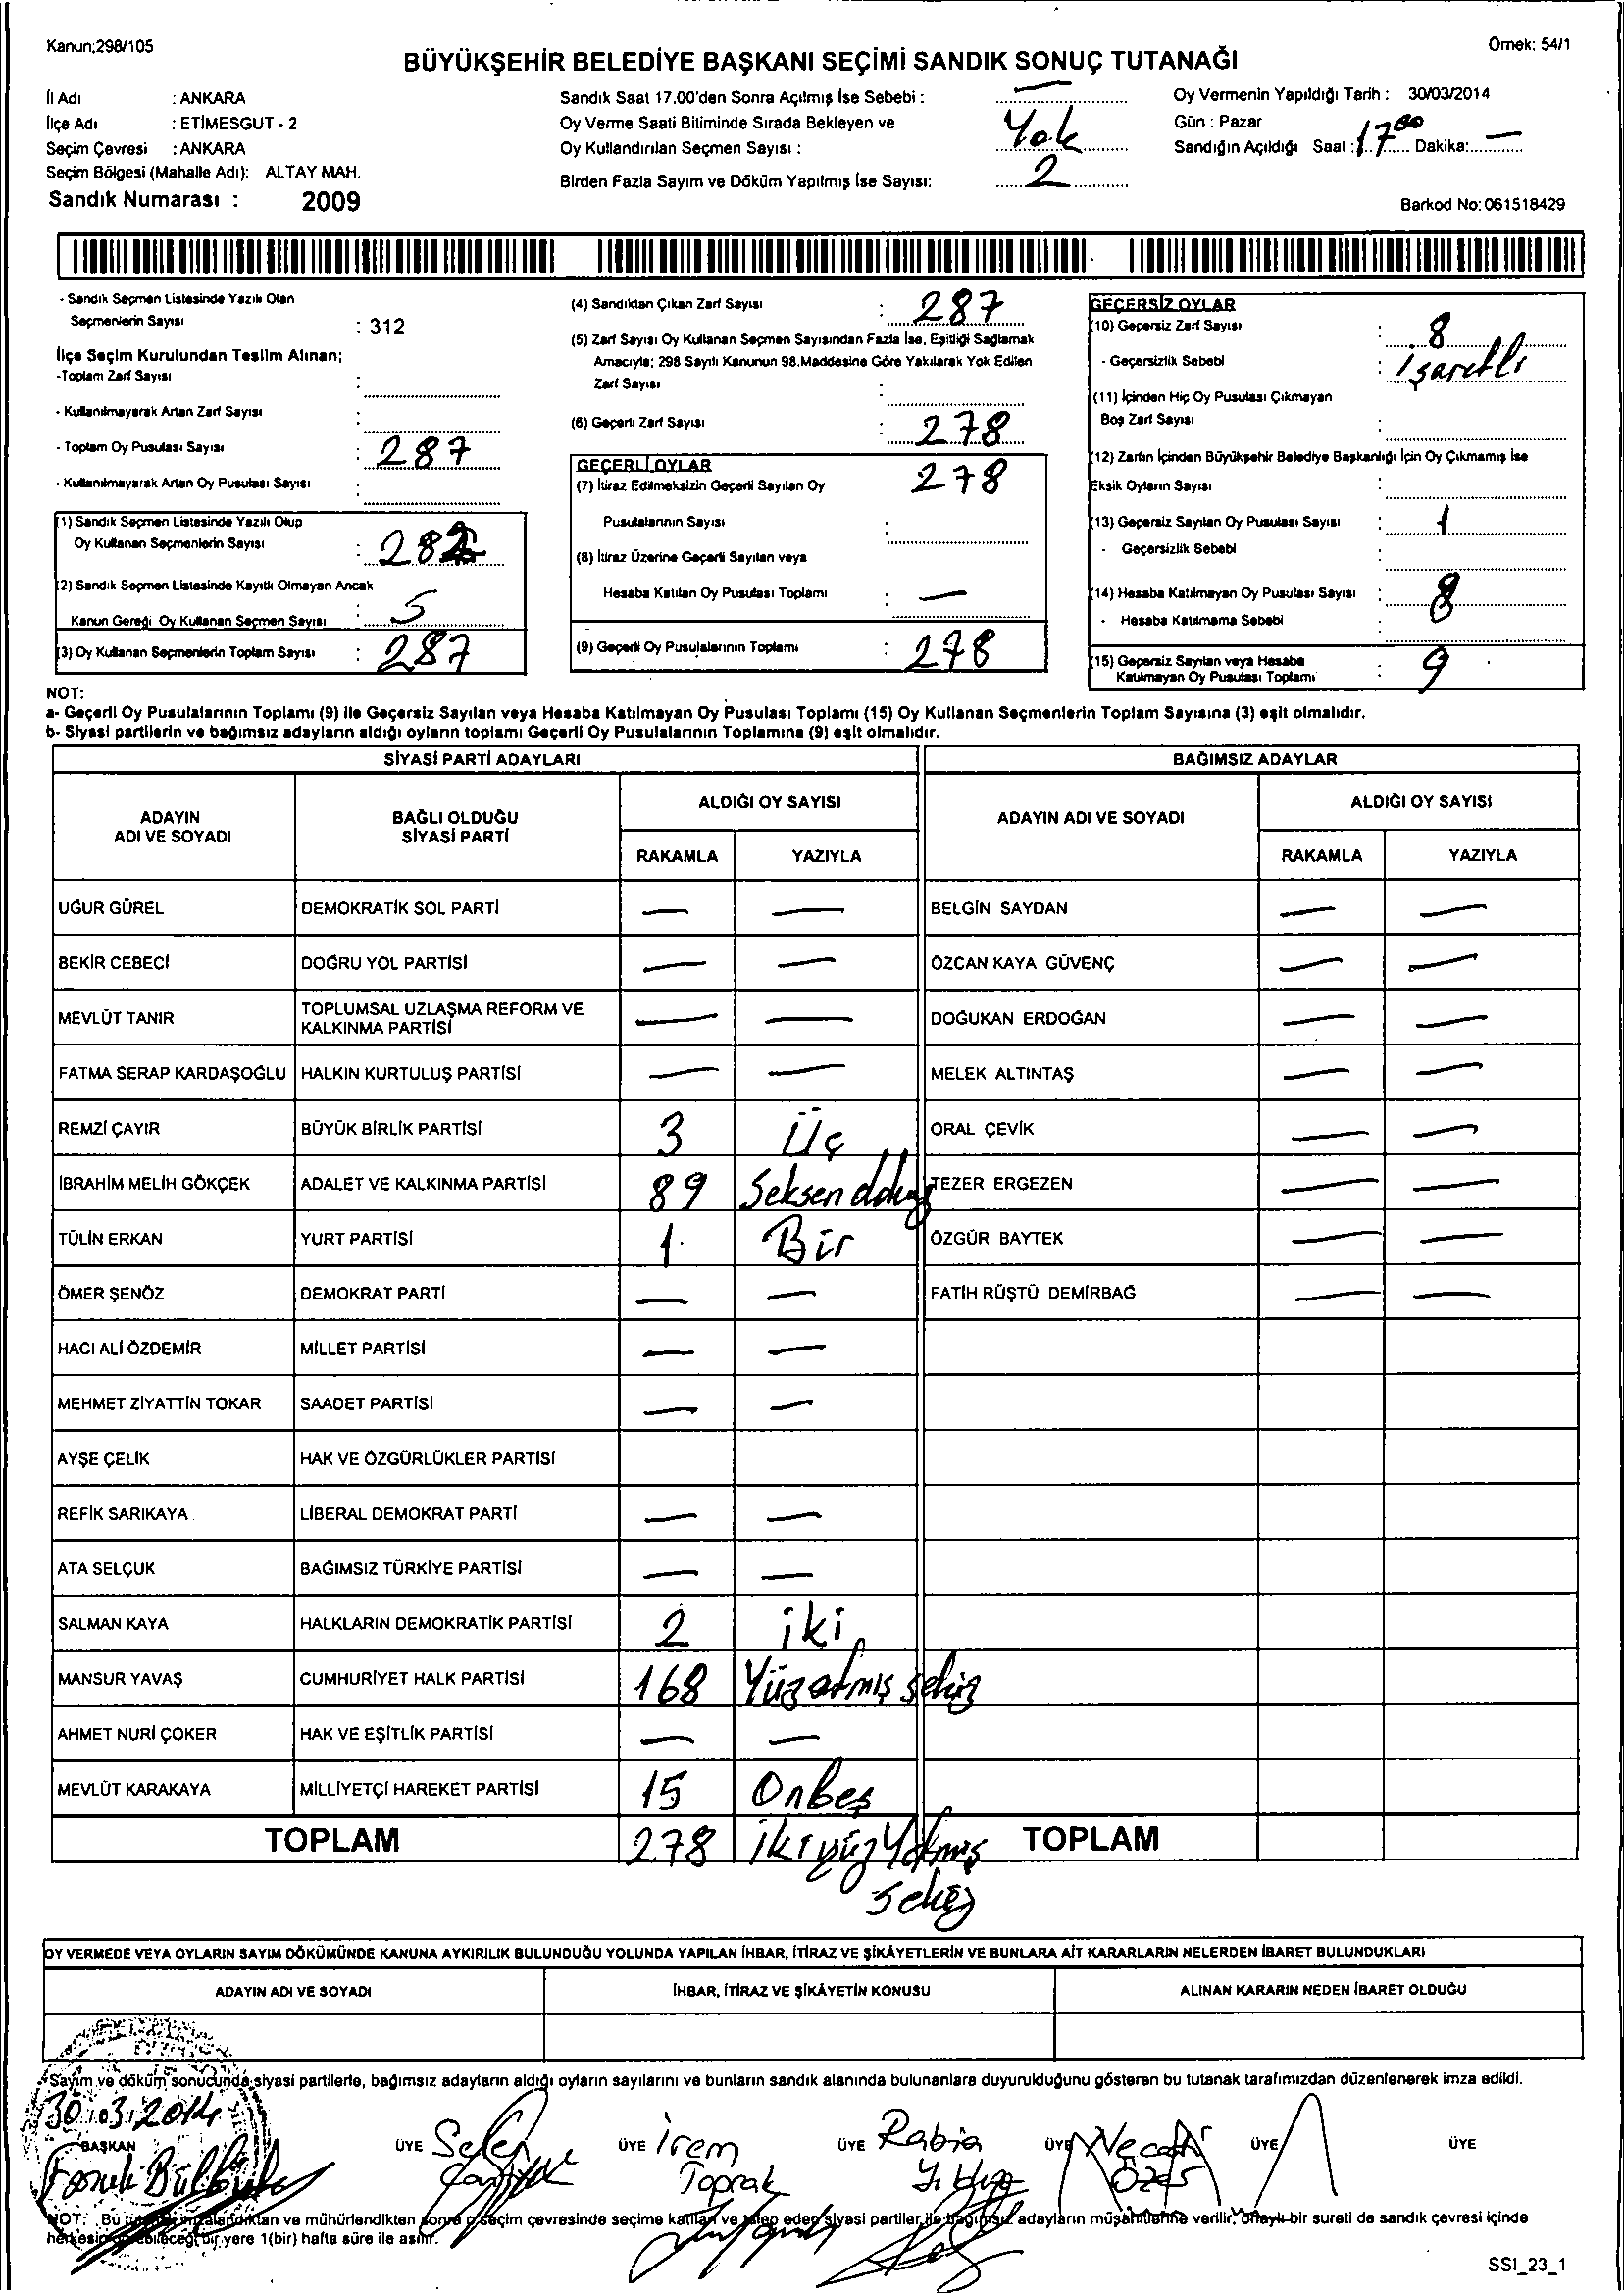 Kanun;298/105
Örnek: 54/1
BÜYÜKŞEHİR BELEDİYE BAŞKANI SEÇİMİ SANDIK SONUÇ TUTANAĞI
İl Adı : ANKARA
İlçe Adı : ETİMESGUT - 2
Seçim Çevresi : ANKARA
Seçim Bölgesi (Mahalle Adı): ALTAY MAH.
Sandık Numarası : 2009
Sandık Saat 17.00'den Sonra Açılmış İse Sebebi : —
Oy Verme Saati Bitiminde Sırada Bekleyen ve
Oy Kullandırılan Seçmen Sayısı : Yok
Birden Fazla Sayım ve Döküm Yapılmış İse Sayısı: 2
Oy Vermenin Yapıldığı Tarih : 30/03/2014
Gün : Pazar
Sandığın Açıldığı Saat : 17⁰⁰ Dakika: —
Barkod No: 061518429
- Sandık Seçmen Listesinde Yazılı Olan
Seçmenlerin Sayısı : 312
İlçe Seçim Kurulundan Teslim Alınan;
-Toplam Zarf Sayısı :
- Kullanılmayarak Artan Zarf Sayısı :
- Toplam Oy Pusulası Sayısı : 287
- Kullanılmayarak Artan Oy Pusulası Sayısı :
(1) Sandık Seçmen Listesinde Yazılı Olup
Oy Kullanan Seçmenlerin Sayısı : 282
(2) Sandık Seçmen Listesinde Kayıtlı Olmayan Ancak
Kanun Gereği Oy Kullanan Seçmen Sayısı : 5
(3) Oy Kullanan Seçmenlerin Toplam Sayısı : 287
(4) Sandıktan Çıkan Zarf Sayısı : 287
(5) Zarf Sayısı Oy Kullanan Seçmen Sayısından Fazla İse, Eşitliği Sağlamak
Amacıyla; 298 Sayılı Kanunun 98.Maddesine Göre Yakılarak Yok Edilen
Zarf Sayısı :
(6) Geçerli Zarf Sayısı : 278
GEÇERLİ OYLAR
(7) İtiraz Edilmeksizin Geçerli Sayılan Oy 278
Pusulalarının Sayısı :
(8) İtiraz Üzerine Geçerli Sayılan veya
Hesaba Katılan Oy Pusulası Toplamı : —
(9) Geçerli Oy Pusulalarının Toplamı : 278
GEÇERSİZ OYLAR
(10) Geçersiz Zarf Sayısı : 8
- Geçersizlik Sebebi : İşaretli
(11) İçinden Hiç Oy Pusulası Çıkmayan
Boş Zarf Sayısı :
(12) Zarfın İçinden Büyükşehir Belediye Başkanlığı İçin Oy Çıkmamış İse
Eksik Oyların Sayısı :
(13) Geçersiz Sayılan Oy Pusulası Sayısı : 1
- Geçersizlik Sebebi
(14) Hesaba Katılmayan Oy Pusulası Sayısı : 8
- Hesaba Katılmama Sebebi
(15) Geçersiz Sayılan veya Hesaba
Katılmayan Oy Pusulası Toplamı : 9
NOT:
a- Geçerli Oy Pusulalarının Toplamı (9) ile Geçersiz Sayılan veya Hesaba Katılmayan Oy Pusulası Toplamı (15) Oy Kullanan Seçmenlerin Toplam Sayısına (3) eşit olmalıdır.
b- Siyasi partilerin ve bağımsız adayların aldığı oyların toplamı Geçerli Oy Pusulalarının Toplamına (9) eşit olmalıdır.
SİYASİ PARTİ ADAYLARI
BAĞIMSIZ ADAYLAR
ADAYIN
ADI VE SOYADI
BAĞLI OLDUĞU
SİYASİ PARTİ
ALDIĞI OY SAYISI
RAKAMLA YAZIYLA
ADAYIN ADI VE SOYADI
ALDIĞI OY SAYISI
RAKAMLA YAZIYLA
UĞUR GÜREL DEMOKRATİK SOL PARTİ — — BELGİN SAYDAN — —
BEKİR CEBECİ DOĞRU YOL PARTİSİ — — ÖZCAN KAYA GÜVENÇ — —
MEVLÜT TANIR TOPLUMSAL UZLAŞMA REFORM VE
KALKINMA PARTİSİ — — DOĞUKAN ERDOĞAN — —
FATMA SERAP KARDAŞOĞLU HALKIN KURTULUŞ PARTİSİ — — MELEK ALTINTAŞ — —
REMZİ ÇAYIR BÜYÜK BİRLİK PARTİSİ 3 Üç ORAL ÇEVİK — —
İBRAHİM MELİH GÖKÇEK ADALET VE KALKINMA PARTİSİ 89 Seksen dokuz TEZER ERGEZEN — —
TÜLİN ERKAN YURT PARTİSİ 1 Bir ÖZGÜR BAYTEK — —
ÖMER ŞENÖZ DEMOKRAT PARTİ — — FATİH RÜŞTÜ DEMİRBAĞ — —
HACI ALİ ÖZDEMİR MİLLET PARTİSİ — —
MEHMET ZİYATTİN TOKAR SAADET PARTİSİ — —
AYŞE ÇELİK HAK VE ÖZGÜRLÜKLER PARTİSİ
REFİK SARIKAYA LİBERAL DEMOKRAT PARTİ — —
ATA SELÇUK BAĞIMSIZ TÜRKİYE PARTİSİ — —
SALMAN KAYA HALKLARIN DEMOKRATİK PARTİSİ 2 iki
MANSUR YAVAŞ CUMHURİYET HALK PARTİSİ 168 Yüzatmış sekiz
AHMET NURİ ÇOKER HAK VE EŞİTLİK PARTİSİ — —
MEVLÜT KARAKAYA MİLLİYETÇİ HAREKET PARTİSİ 15 Onbeş
TOPLAM 278 ikiyüzyetmiş TOPLAM
sekiz
OY VERMEDE VEYA OYLARIN SAYIM DÖKÜMÜNDE KANUNA AYKIRILIK BULUNDUĞU YOLUNDA YAPILAN İHBAR, İTİRAZ VE ŞİKÂYETLERİN VE BUNLARA AİT KARARLARIN NELERDEN İBARET BULUNDUKLARI
ADAYIN ADI VE SOYADI İHBAR, İTİRAZ VE ŞİKÂYETİN KONUSU ALINAN KARARIN NEDEN İBARET OLDUĞU
Sayım ve döküm sonucunda siyasi partilerle, bağımsız adayların aldığı oyların sayılarını ve bunların sandık alanında bulunanlara duyurulduğunu gösteren bu tutanak tarafımızdan düzenlenerek imza edildi.
30.03.2014
BAŞKAN ÜYE ÜYE İrem ÜYE Rabia ÜYE Necati ÜYE ÜYE
Faruk Toprak Yıldız Özer
NOT: Bu tutanak imzalandıktan ve mühürlendikten sonra o seçim çevresinde seçime katılan ve talep eden siyasi partiler ile bağımsız adayların müşahitlerine verilir, onaylı bir sureti de sandık çevresi içinde
herkesin görebileceği bir yere 1(bir) hafta süre ile asılır.
SSI_23_1